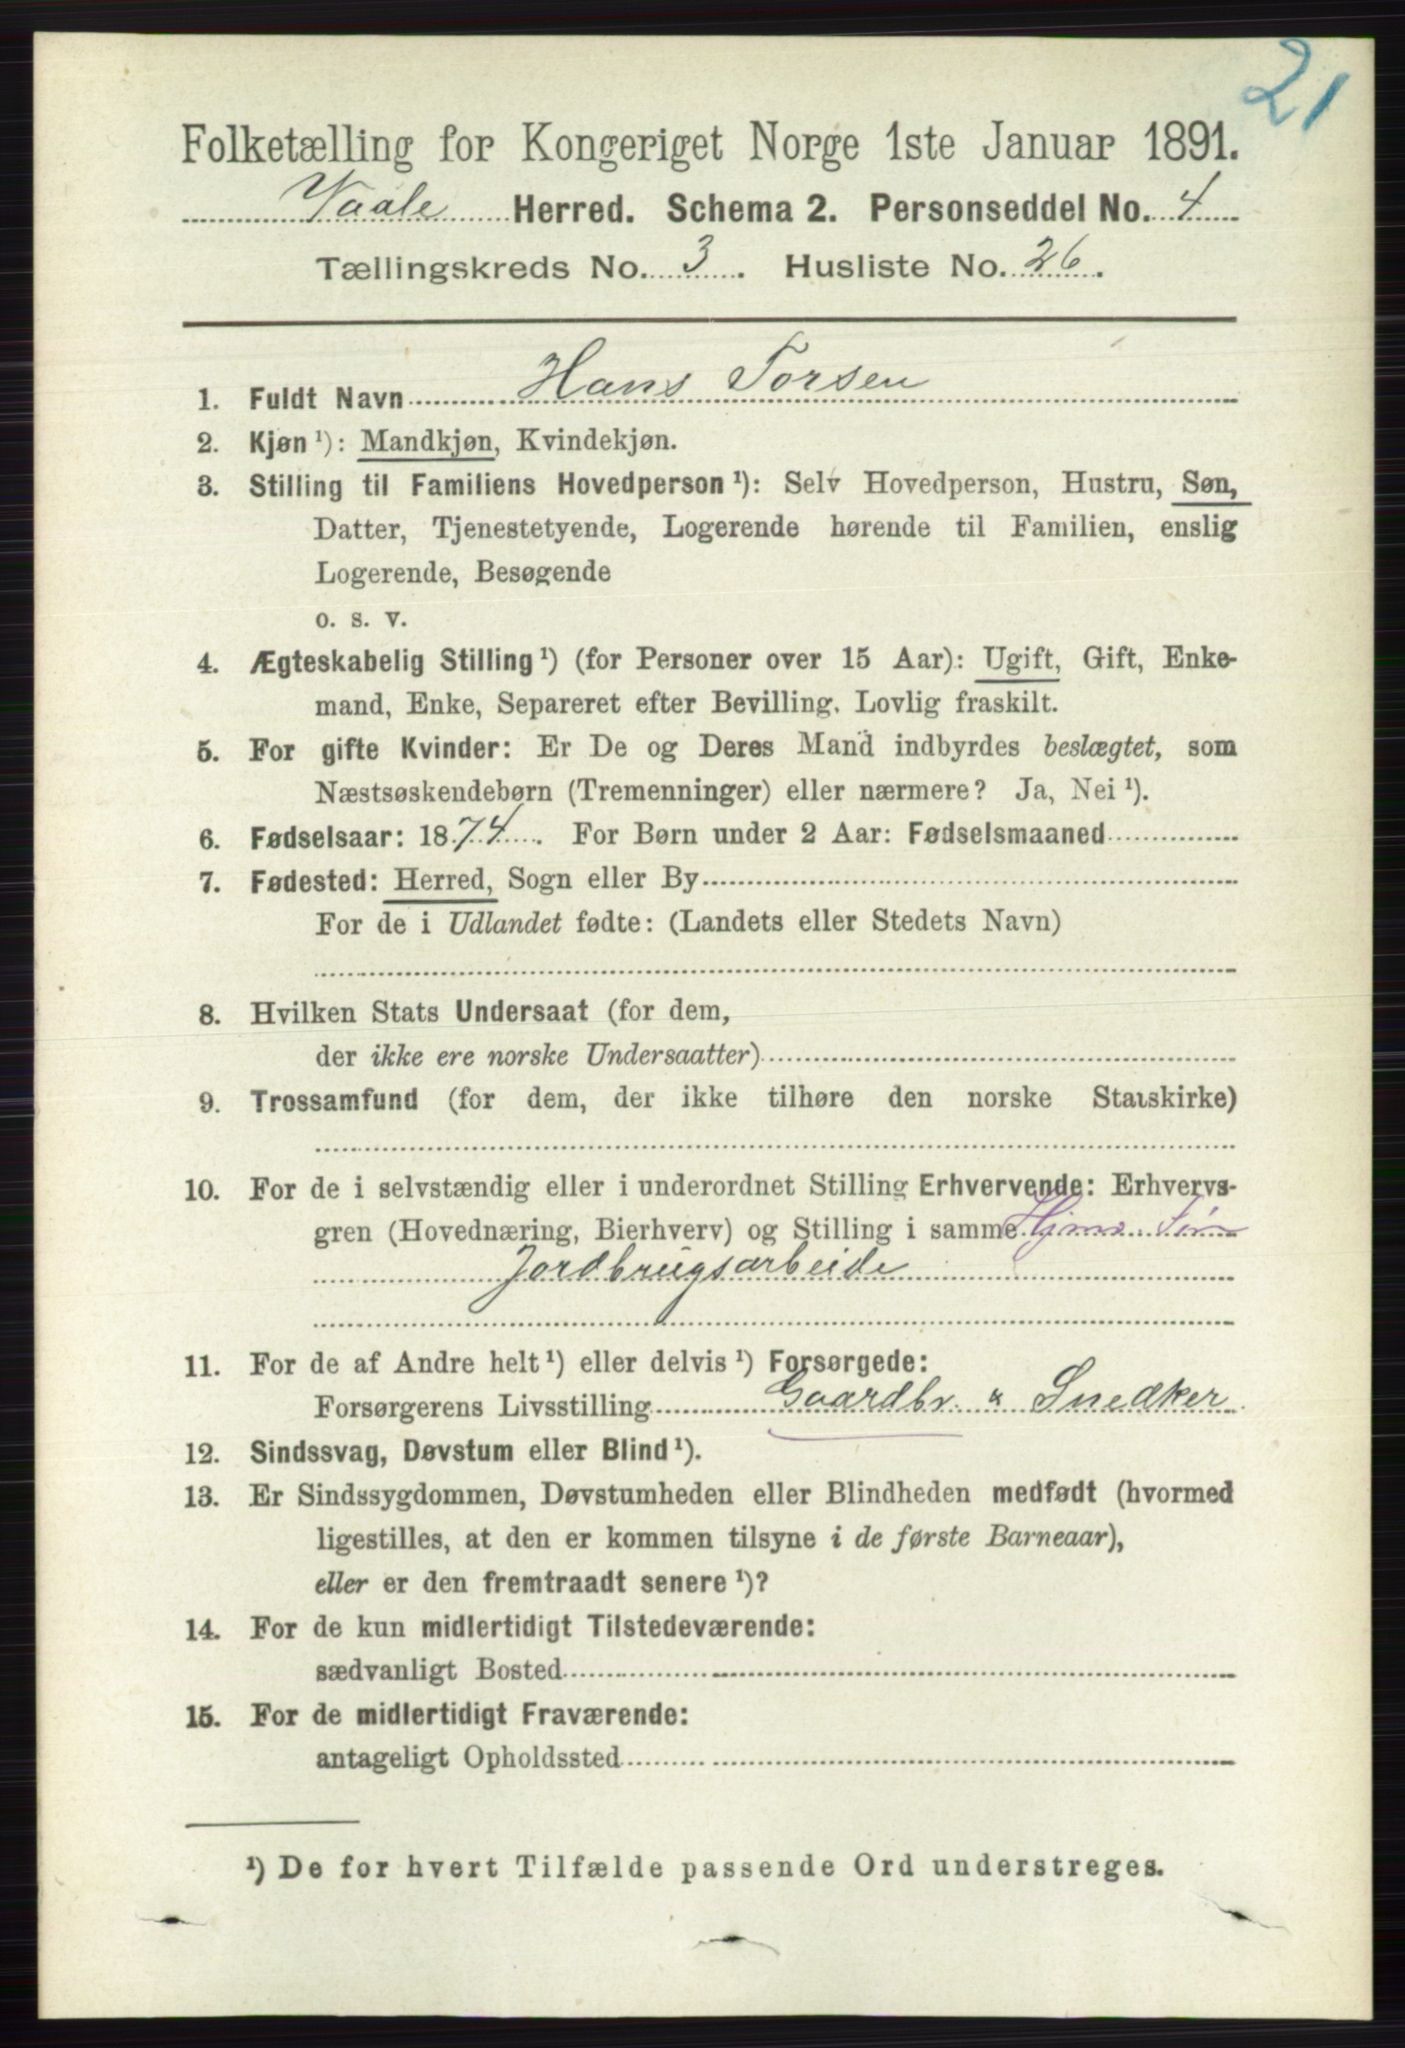 21
Folketælling for Kongeriget Norge 1ste Januar 1891.
Vaale Herred. Schema 2. Personseddel No. 4
Tællingskreds No. 3. Husliste No. 26.
1. Fuldt Navn Hans Torsen
2. Kjøn ¹): Mandkjøn, Kvindekjøn.
3. Stilling til Familiens Hovedperson ¹): Selv Hovedperson, Hustru, Søn,
Datter, Tjenestetyende, Logerende hørende til Familien, enslig
Logerende, Besøgende
o. s. v.
4. Ægteskabelig Stilling ¹) (for Personer over 15 Aar): Ugift, Gift, Enke-
mand, Enke, Separeret efter Bevilling. Lovlig fraskilt.
5. For gifte Kvinder: Er De og Deres Mand indbyrdes beslægtet, som
Næstsøskendebørn (Tremenninger) eller nærmere? Ja, Nei ¹).
6. Fødselsaar: 1874. For Børn under 2 Aar: Fødselsmaaned
7. Fødested: Herred, Sogn eller By
For de i Udlandet fødte: (Landets eller Stedets Navn)
8. Hvilken Stats Undersaat (for dem,
der ikke ere norske Undersaatter)
9. Trossamfund (for dem, der ikke tilhøre den norske Statskirke)
10. For de i selvstændig eller i underordnet Stilling Erhvervende: Erhvervs-
gren (Hovednæring, Bierhverv) og Stilling i samme
Jordbrugsarbeide
11. For de af Andre helt ¹) eller delvis ¹) Forsørgede:
Forsørgerens Livsstilling Gaardbr. & Snedker
12. Sindssvag, Døvstum eller Blind ¹).
13. Er Sindssygdommen, Døvstumheden eller Blindheden medfødt (hvormed
ligestilles, at den er kommen tilsyne i de første Barneaar),
eller er den fremtraadt senere ¹)?
14. For de kun midlertidigt Tilstedeværende:
sædvanligt Bosted
15. For de midlertidigt Fraværende:
antageligt Opholdssted
¹) De for hvert Tilfælde passende Ord understreges.